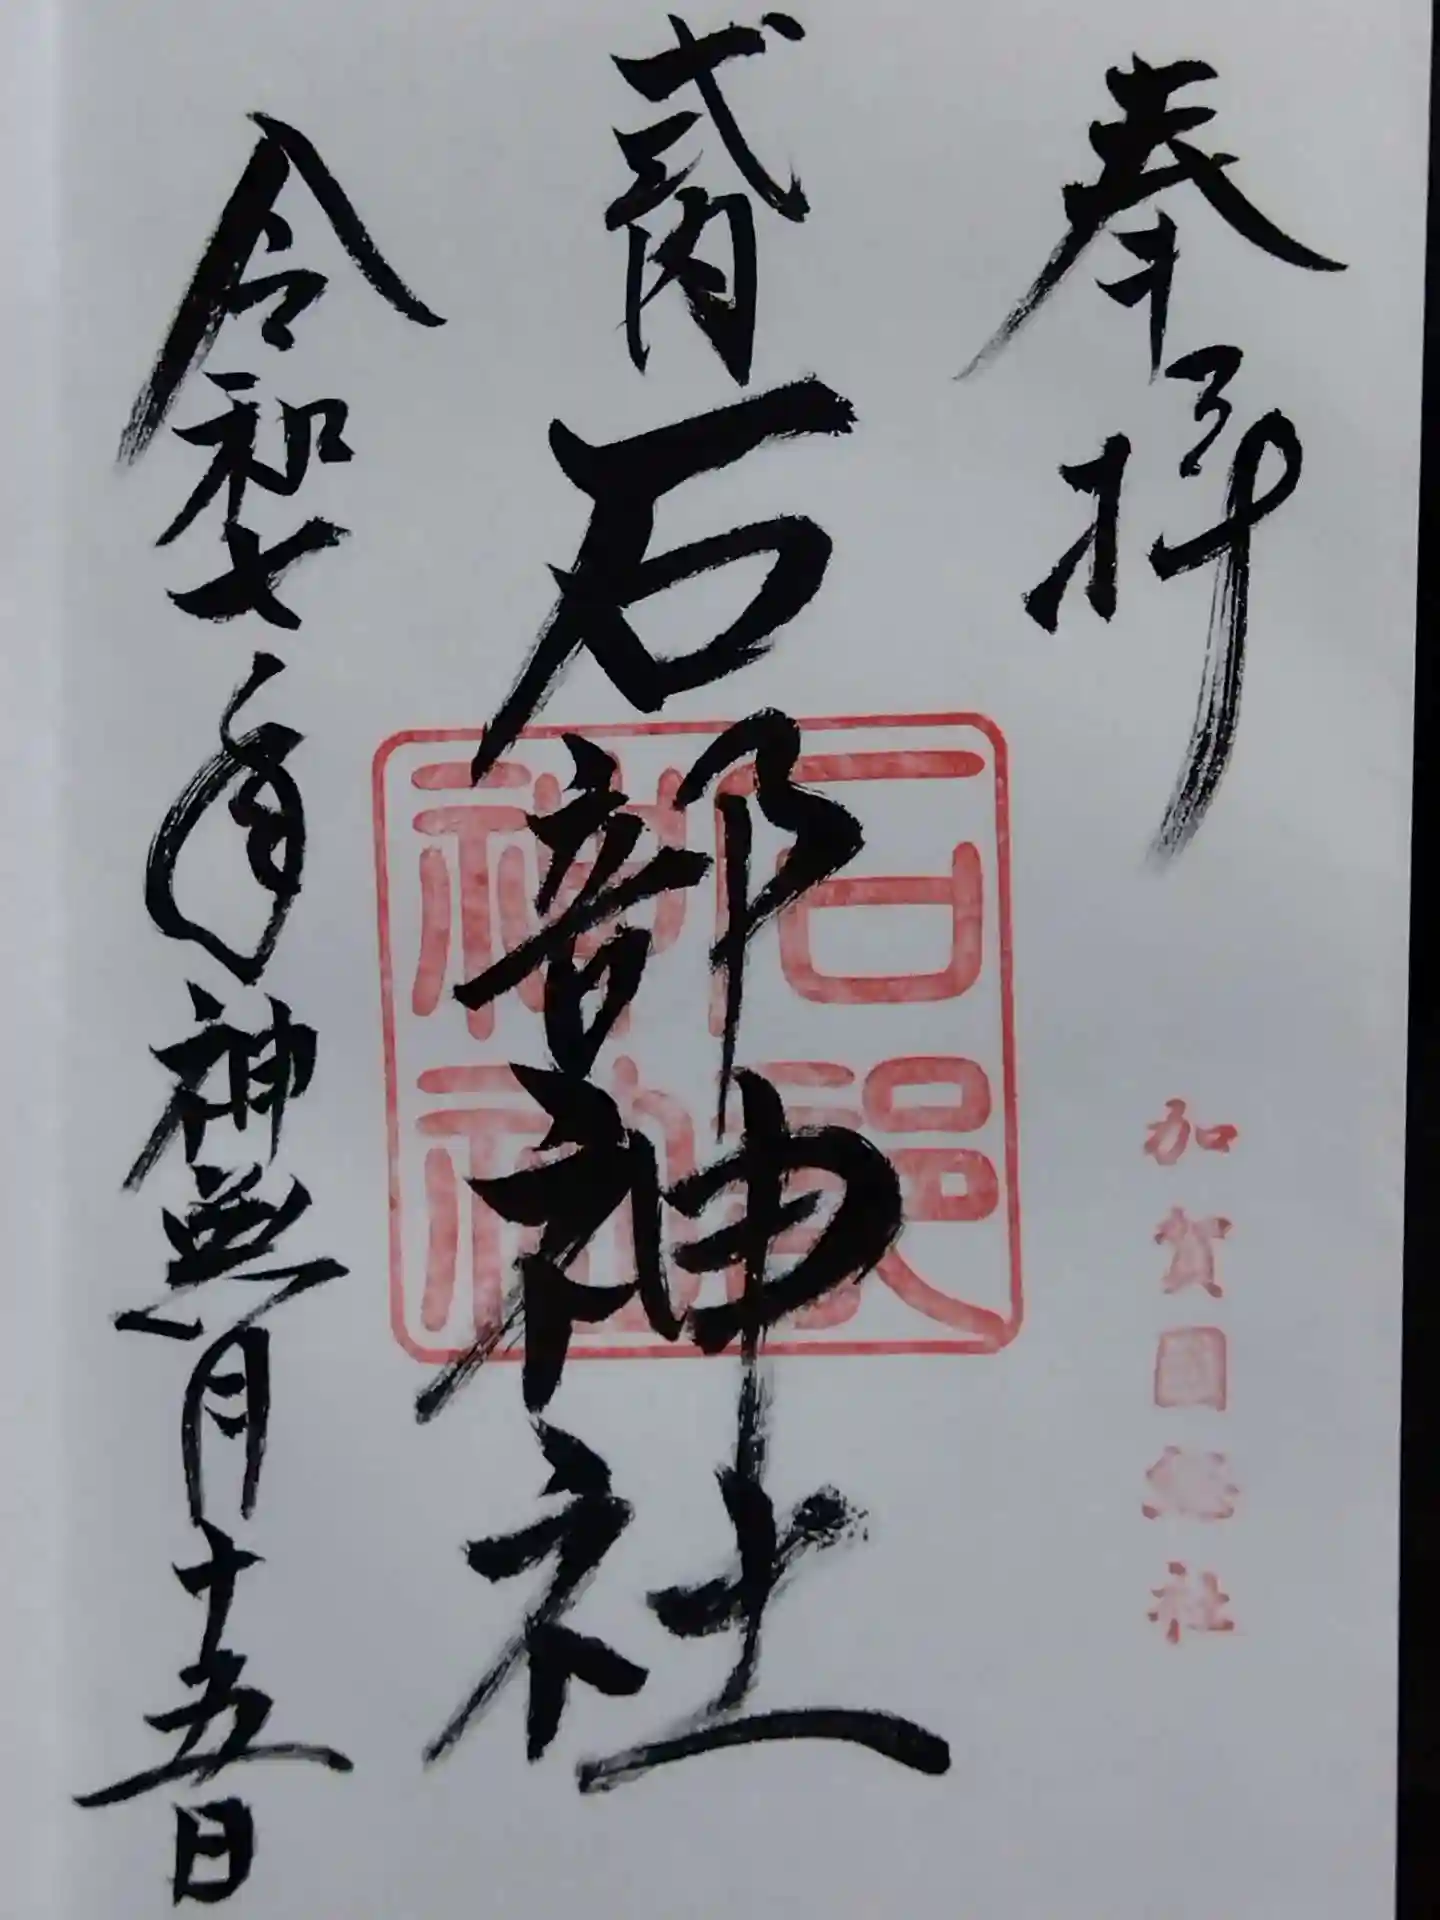 奉拝
加賀國総社
式内石部神社
石部
神社
令和七年神無月十五日